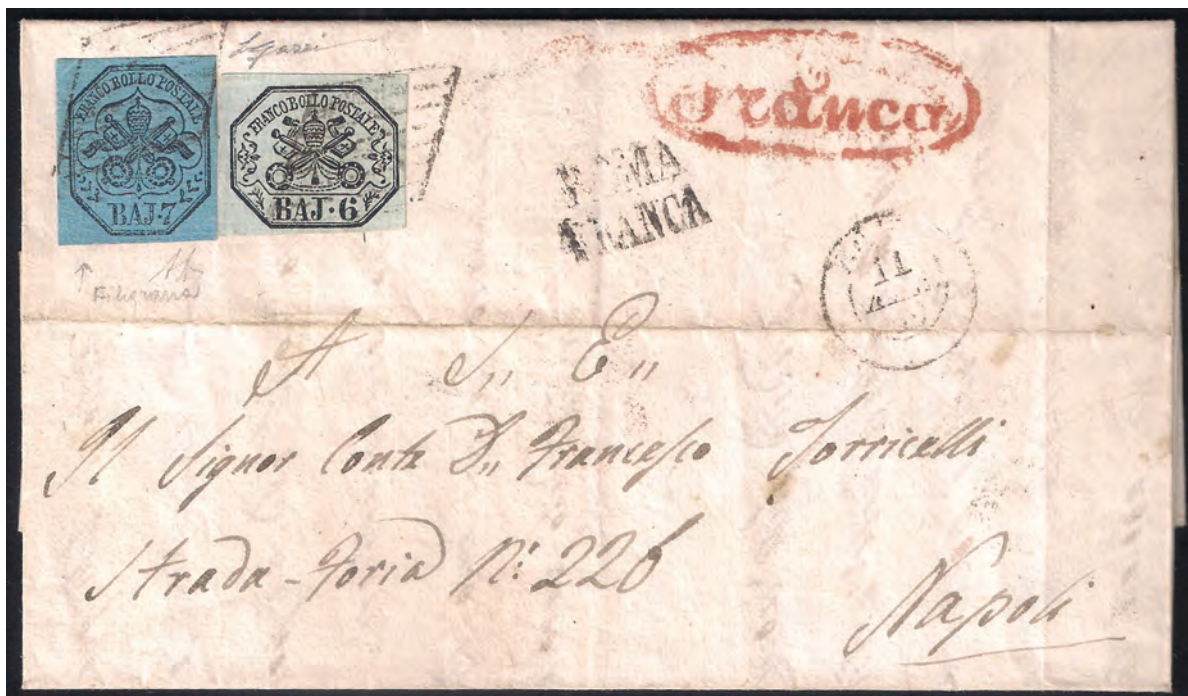 FRANCO BOLLO POSTALE
BAJ·7
FRANCO BOLLO POSTALE
BAJ·6
Franca
ROMA
FRANCA
11
Filigrana
A S. E.
Il Signor Conte D. Francesco Torricelli
Strada-Foria N: 226
Napoli